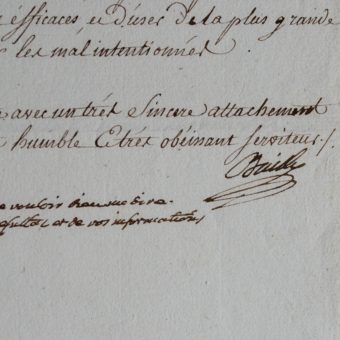 éfficaces et D'user De la plus grande
les mal intentionnés
avec un trés Sincere attachement
humble Et trés obéissant serviteur./.
Bailly
vouloir bien me dire
resultat de vos informations